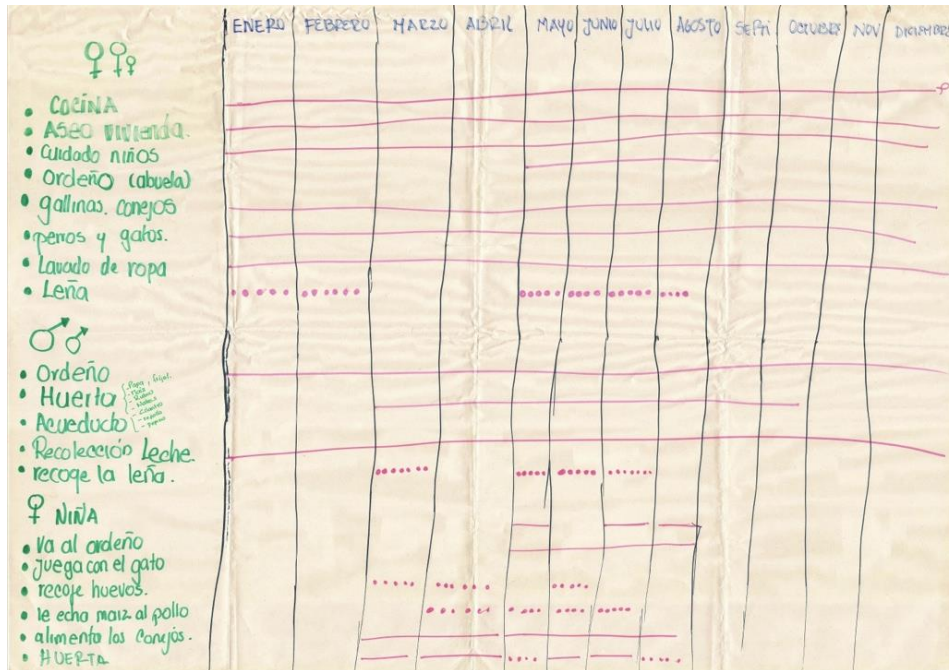 ENERO FEBRERO MARZO ABRIL MAYO JUNIO JULIO AGOSTO SEPTI OCTUBRE NOV DICIEMBRE
• COCINA
• Aseo vivienda.
• Cuidado niños
• Ordeño (abuela)
• gallinas. conejos
• perros y gatos.
• Lavado de ropa
• Leña
• Ordeño
• Huerta
• Acueducto
• Recolección Leche.
• recoge la leña.
NIÑA
• Va al ordeño
• juega con el gato
• recoje huevos.
• le echa maiz al pollo
• alimenta los conejos.
• HUERTA